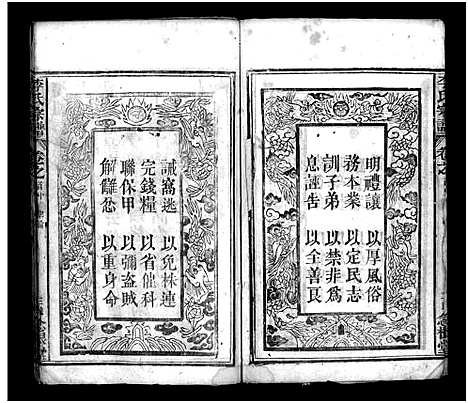 明禮讓 以厚風俗
務本業 以定民志
訓子弟 以禁非爲
息誣告 以全善良
誡窩逃 以免株連
完錢糧 以省催科
聯保甲 以彌盜賊
解讎忿 以重身命